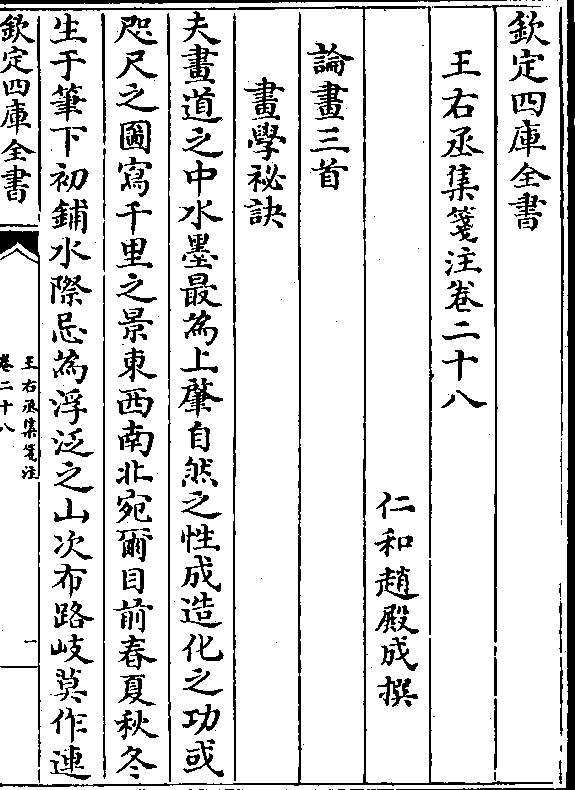 欽定四庫全書
王右丞集箋注卷二十八
仁和趙殿成撰
論畫三首
畫學祕訣
夫畫道之中水墨最為上肇自然之性成造化之功或
咫尺之圖寫千里之景東西南北宛爾目前春夏秋冬
生于筆下初鋪水際忌為浮泛之山次布路岐莫作連
欽定四庫全書
王右丞集箋注
卷二十八
一